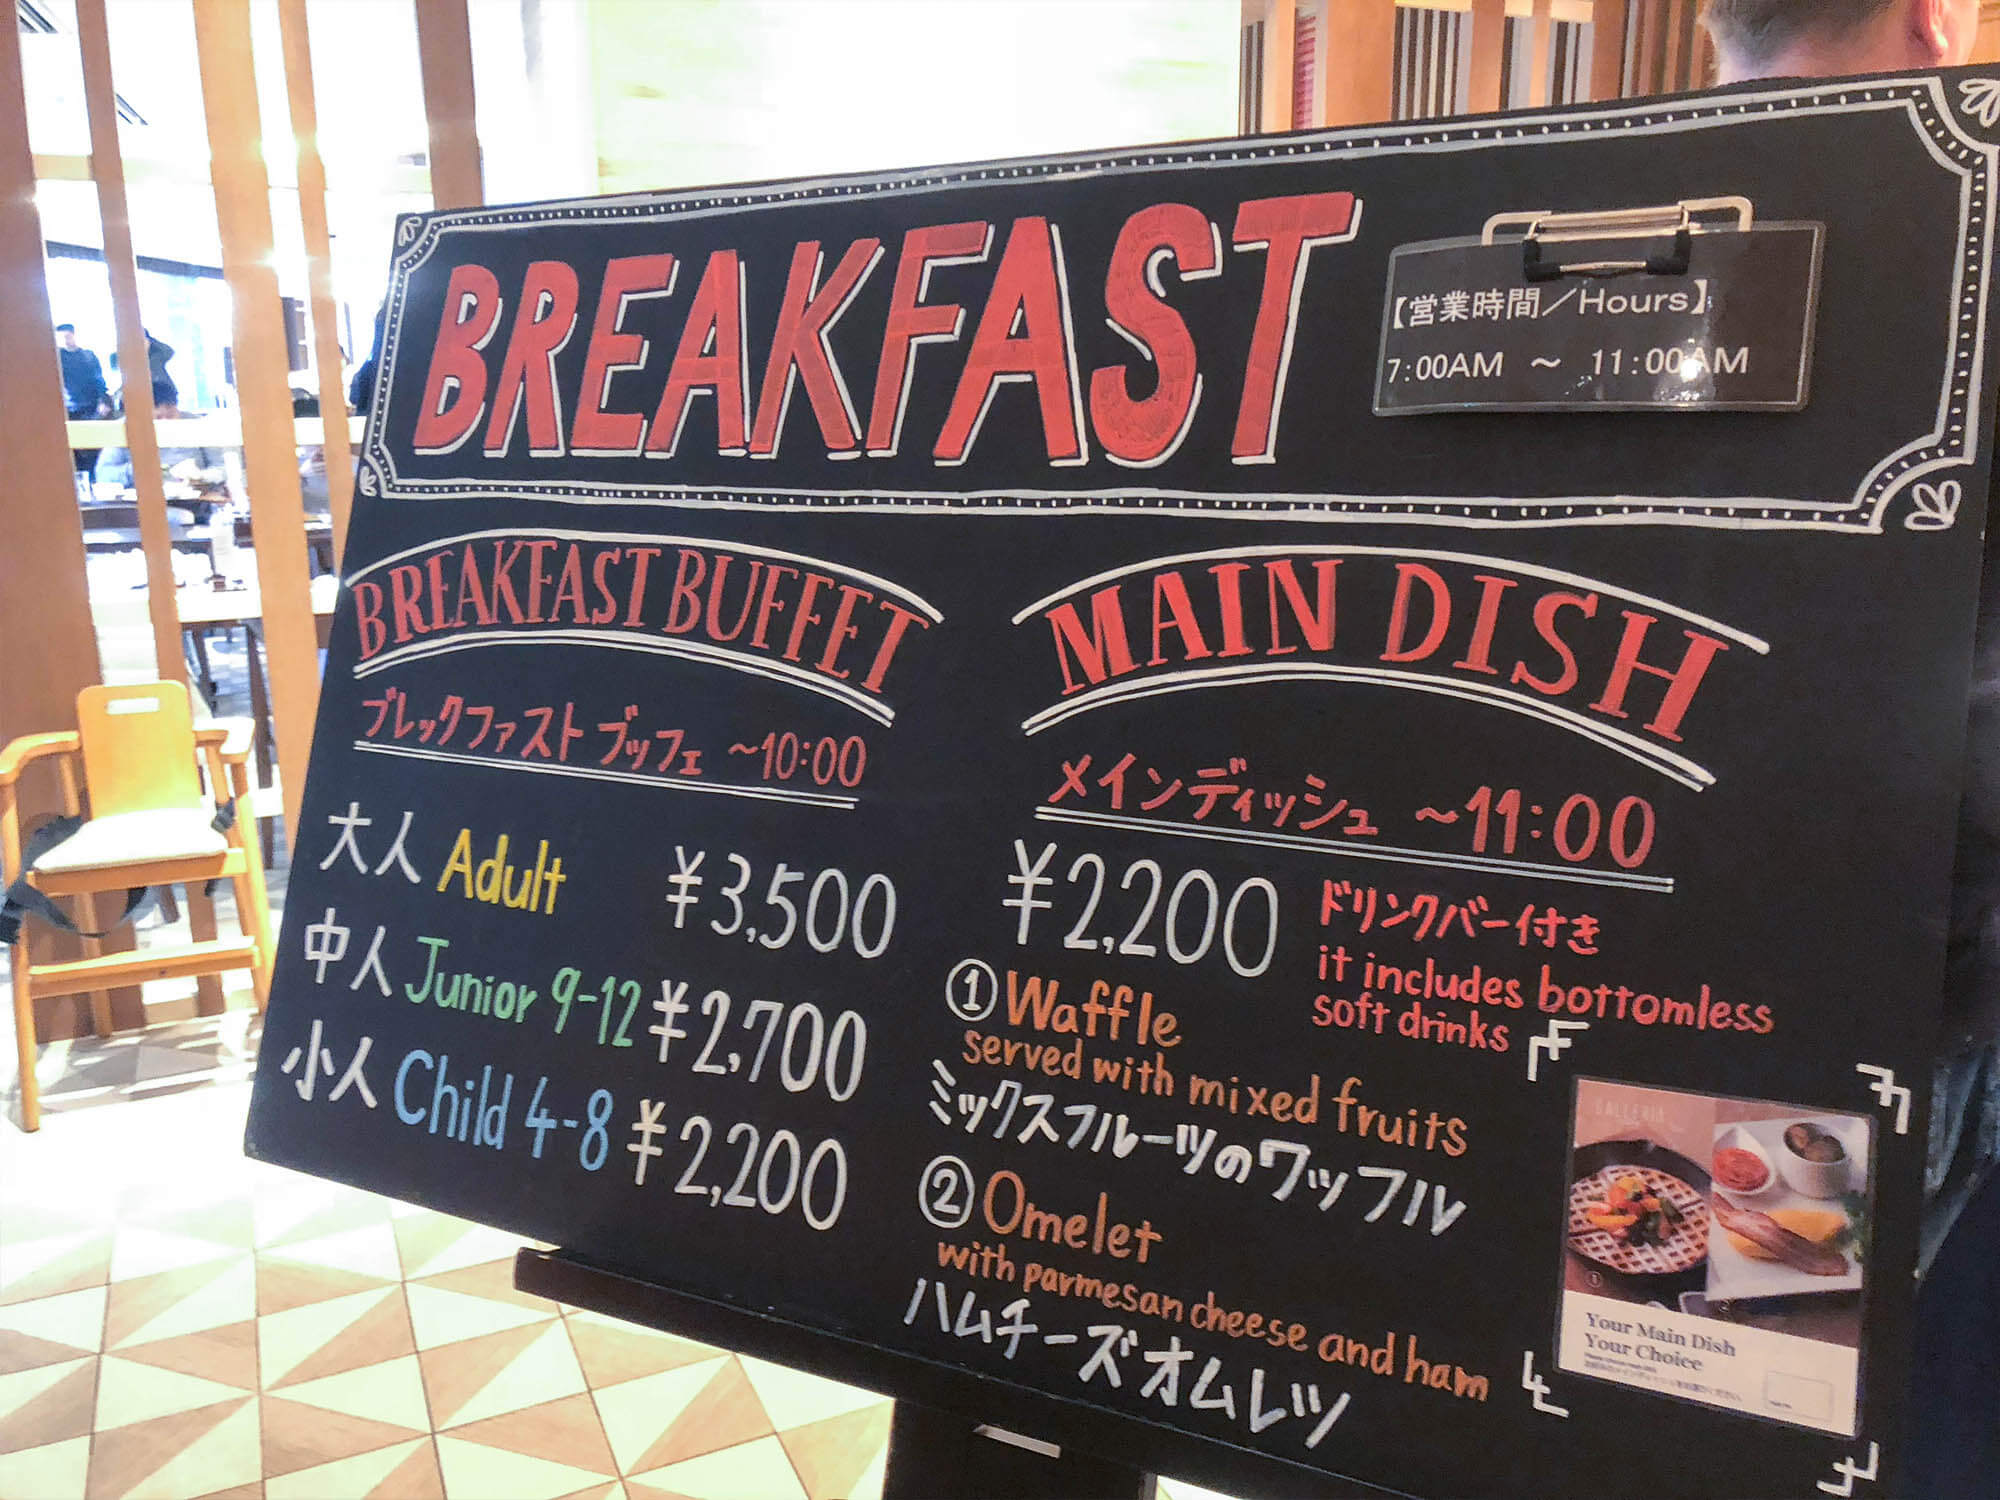 BREAKFAST
【営業時間／Hours】
7:00AM ～ 11:00AM
BREAKFAST BUFFET
ブレックファスト ブッフェ ～10:00
大人 Adult ¥3,500
中人 Junior 9-12 ¥2,700
小人 Child 4-8 ¥2,200
MAIN DISH
メインディッシュ ～11:00
¥2,200 ドリンクバー付き
it includes bottomless
soft drinks
① Waffle
served with mixed fruits
ミックスフルーツのワッフル
② Omelet
with parmesan cheese and ham
ハムチーズオムレツ
GALLERIA
①
②
Your Main Dish
Your Choice